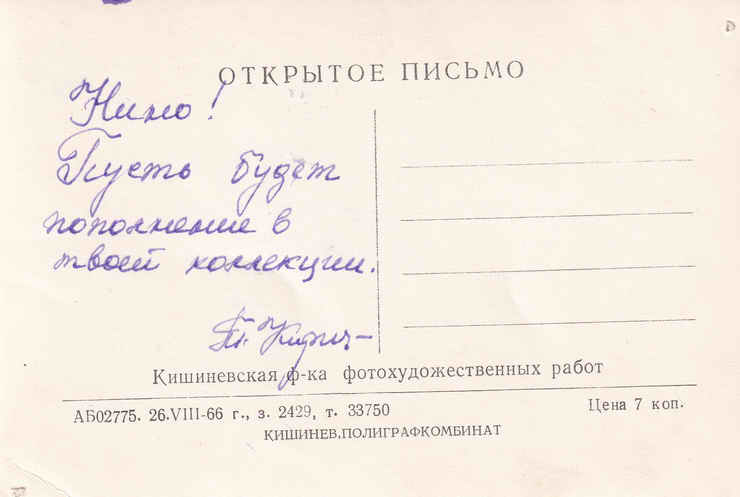 ОТКРЫТОЕ ПИСЬМО
Нино!
Пусть будет
пополнение в
твоей коллекции.
Кишиневская ф-ка фотохудожественных работ
АБ02775. 26.VIII-66 г., з. 2429, т. 33750
Цена 7 коп.
КИШИНЕВ, ПОЛИГРАФКОМБИНАТ